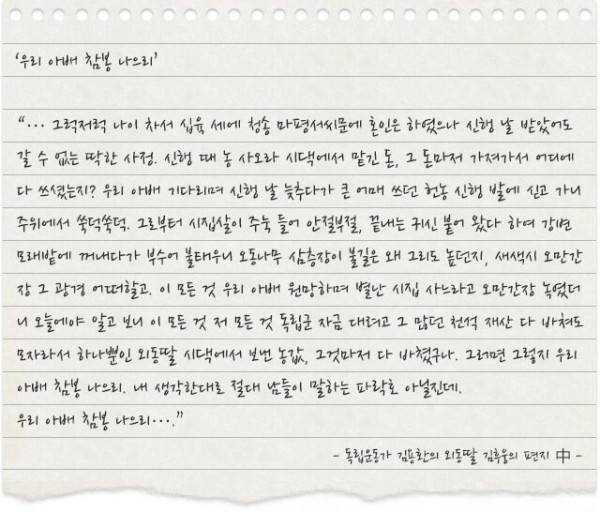 '우리 아배 참봉 나으리'
"… 그럭저럭 나이 차서 십육 세에 청송 마평서씨문에 혼인은 하였으나 신행 날 받았어도
갈 수 없는 딱한 사정. 신행 때 농 사오라 시댁에서 맡긴 돈, 그 돈마저 가져가서 어디에
다 쓰셨는지? 우리 아배 기다리며 신행 날 늦추다가 큰 어매 쓰던 헌농 신행 발에 싣고 가니
주위에서 쑥덕쑥덕. 그로부터 시집살이 주눅 들어 안절부절, 끝내는 귀신 붙어 왔다 하여 강변
모래밭에 꺼내다가 부수어 불태우니 오동나무 삼층장이 불길은 왜 그리도 높던지, 새색시 오만간
장 그 광경 어떠할고. 이 모든 것 우리 아배 원망하며 별난 시집 사느라고 오만간장 녹였더
니 오늘에야 알고 보니 이 모든 것 저 모든 것 독립군 자금 대려고 그 많던 천석 재산 다 바쳐도
모자라서 하나뿐인 외동딸 시댁에서 보낸 농값, 그것마저 다 바쳤구나. 그러면 그렇지 우리
아배 참봉 나으리. 내 생각한대로 절대 남들이 말하는 파락호 아닐진데.
우리 아배 참봉 나으리…."
- 독립운동가 김용환의 외동딸 김후웅의 편지 中 -